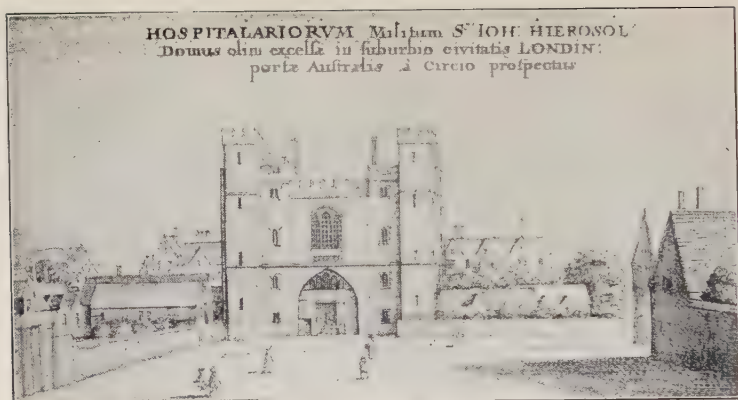 HOSPITALARIORVM Militum Sti IOH. HIEROSOL:
Domus olim excelsæ in suburbio civitatis LONDIN:
portæ Australis à Circio prospectus